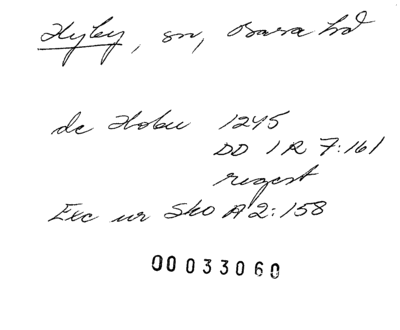 Hyby, sn, Bara hd
de Hobu 1245
DD 1 R 7:161
regest
Exc ur Sko A 2:158
00033060